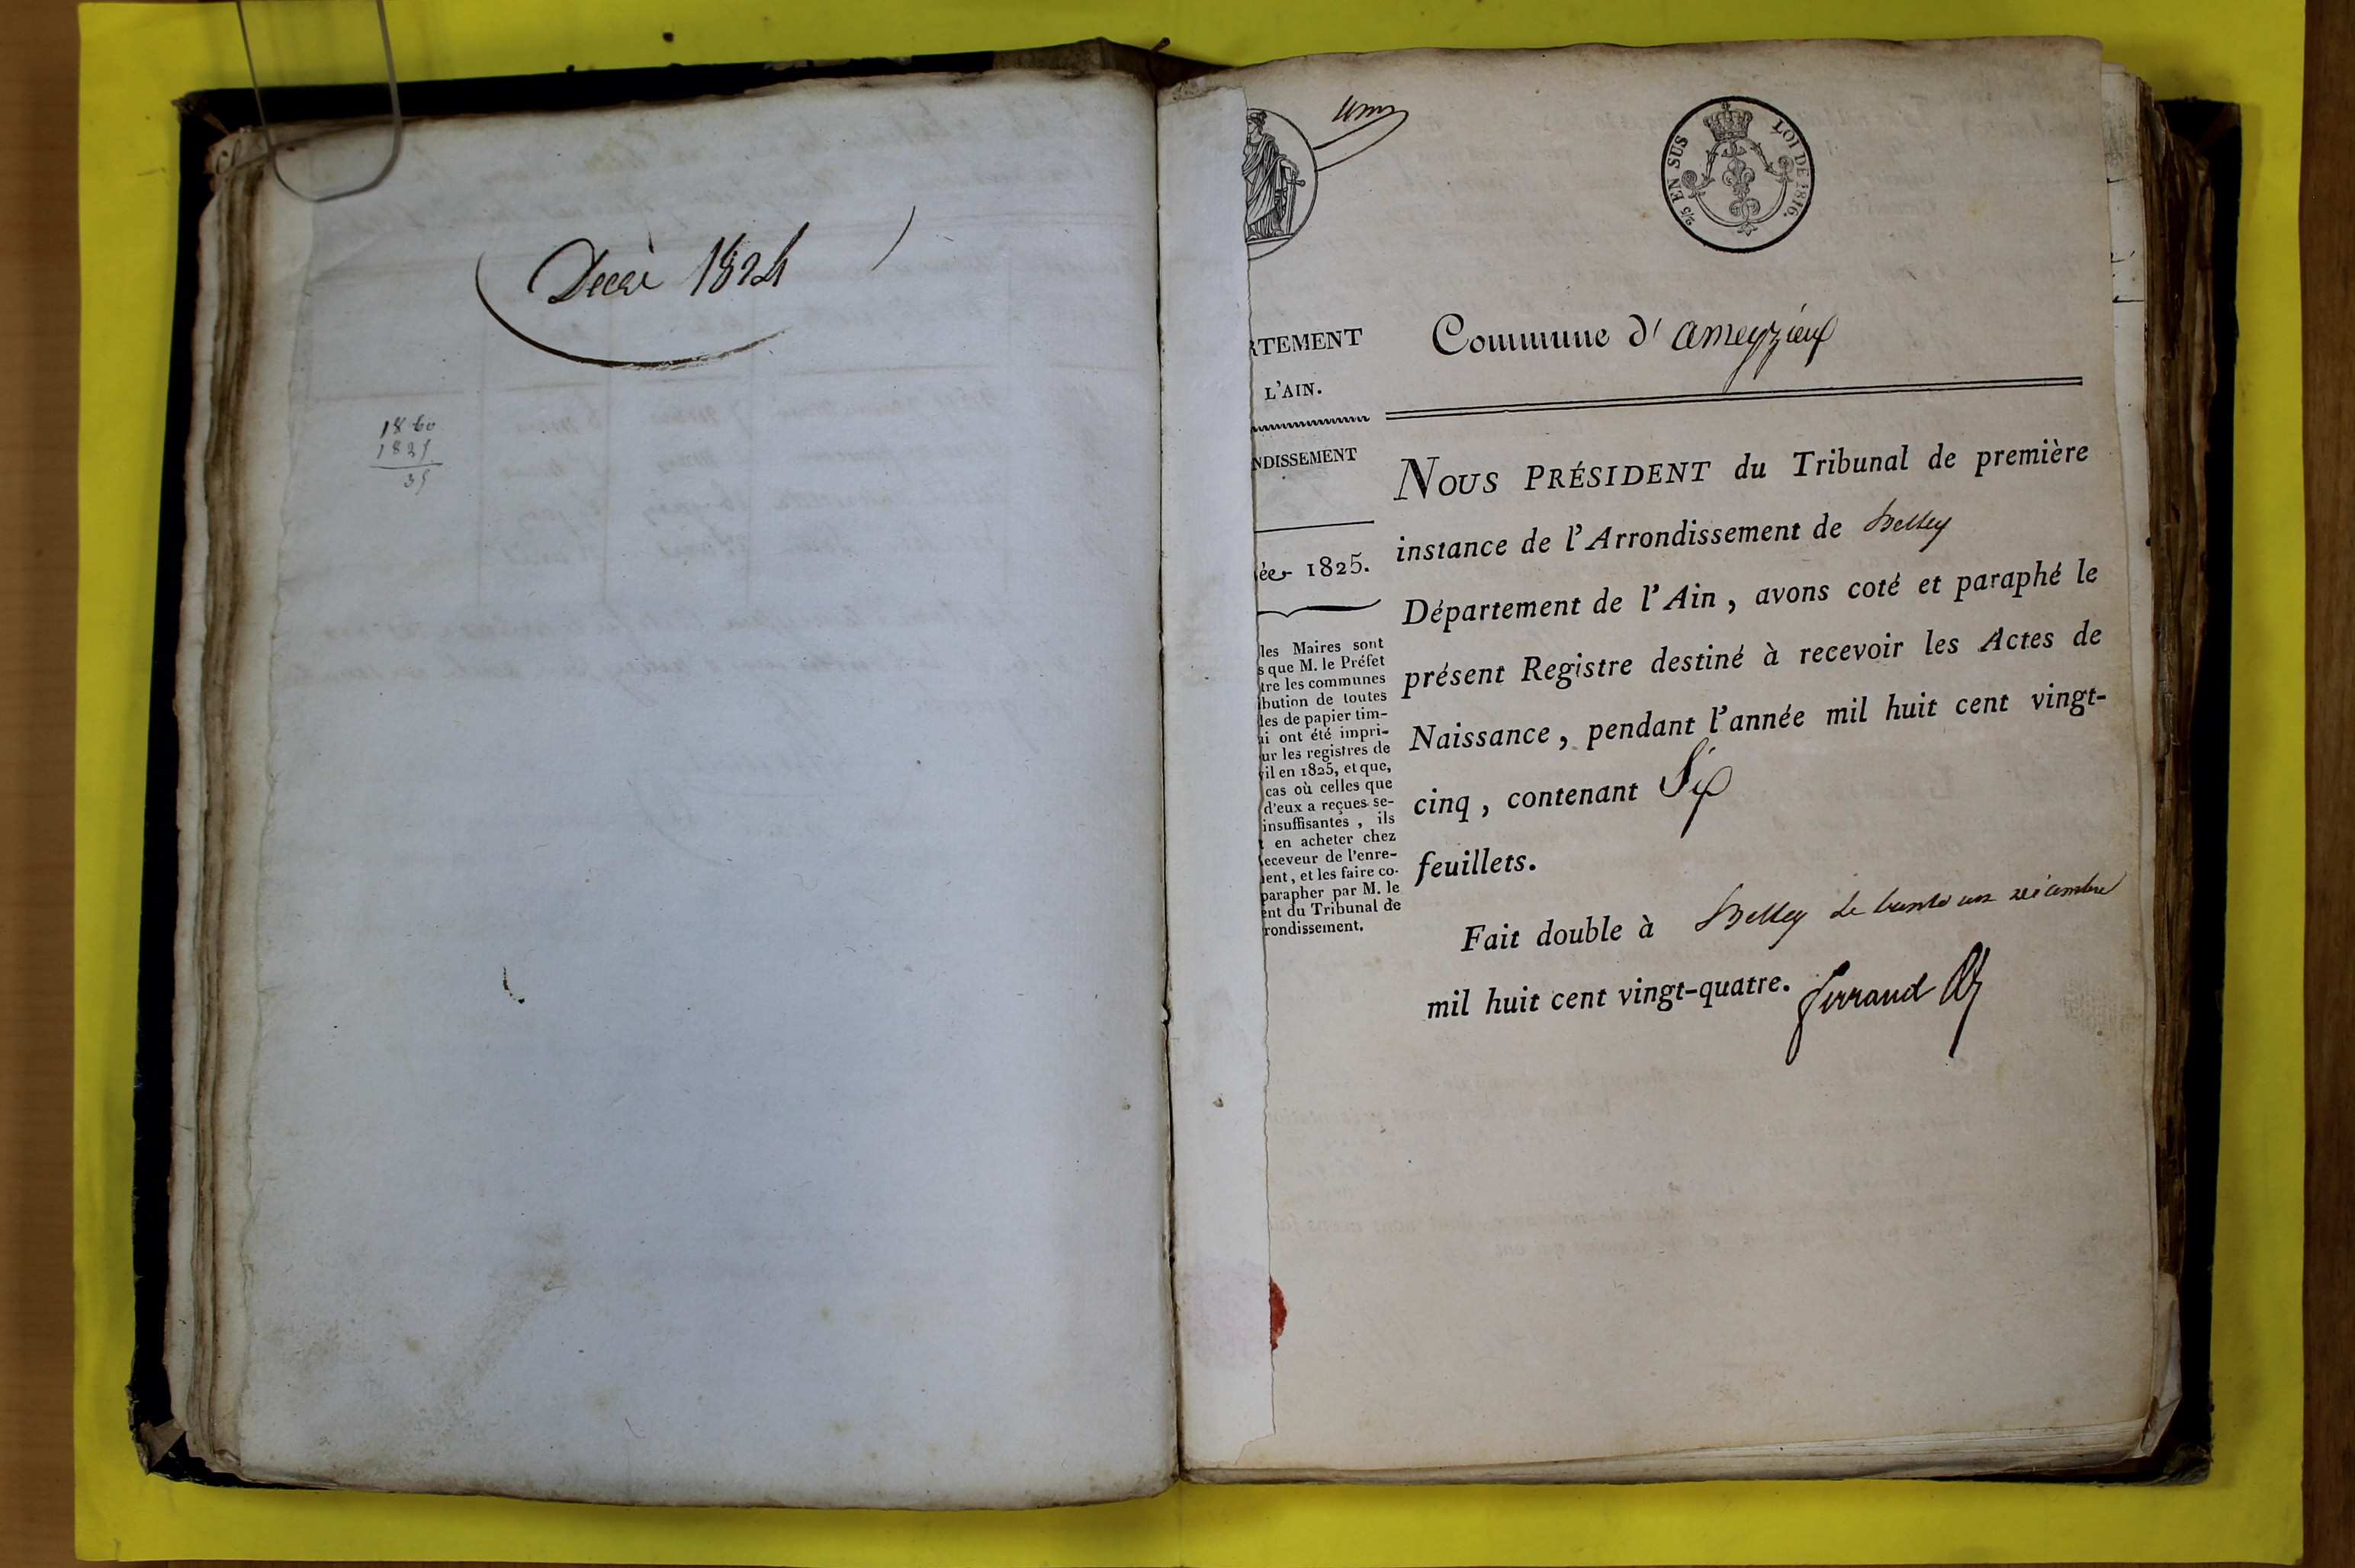 Decè 1824
1860
1825
35
un
2/5 EN SUS LOI DE 1816.
RTEMENT
L'AIN.
NDISSEMENT
ée 1825.
les Maires sont
s que M. le Préfet
tre les communes
ibution de toutes
les de papier tim-
ai ont été impri-
ur les registres de
vil en 1825, et que,
cas où celles que
d'eux a reçues se-
insuffisantes, ils
t en acheter chez
eceveur de l'enre-
ent, et les faire co-
parapher par M. le
ent du Tribunal de
rondissement.
Commune d' ameyzieux
NOUS PRÉSIDENT du Tribunal de première
instance de l'Arrondissement de Belley
Département de l'Ain, avons coté et paraphé le
présent Registre destiné à recevoir les Actes de
Naissance, pendant l'année mil huit cent vingt-
cinq, contenant Six
feuillets.
Fait double à Belley le trente un décembre
mil huit cent vingt-quatre. ferrand